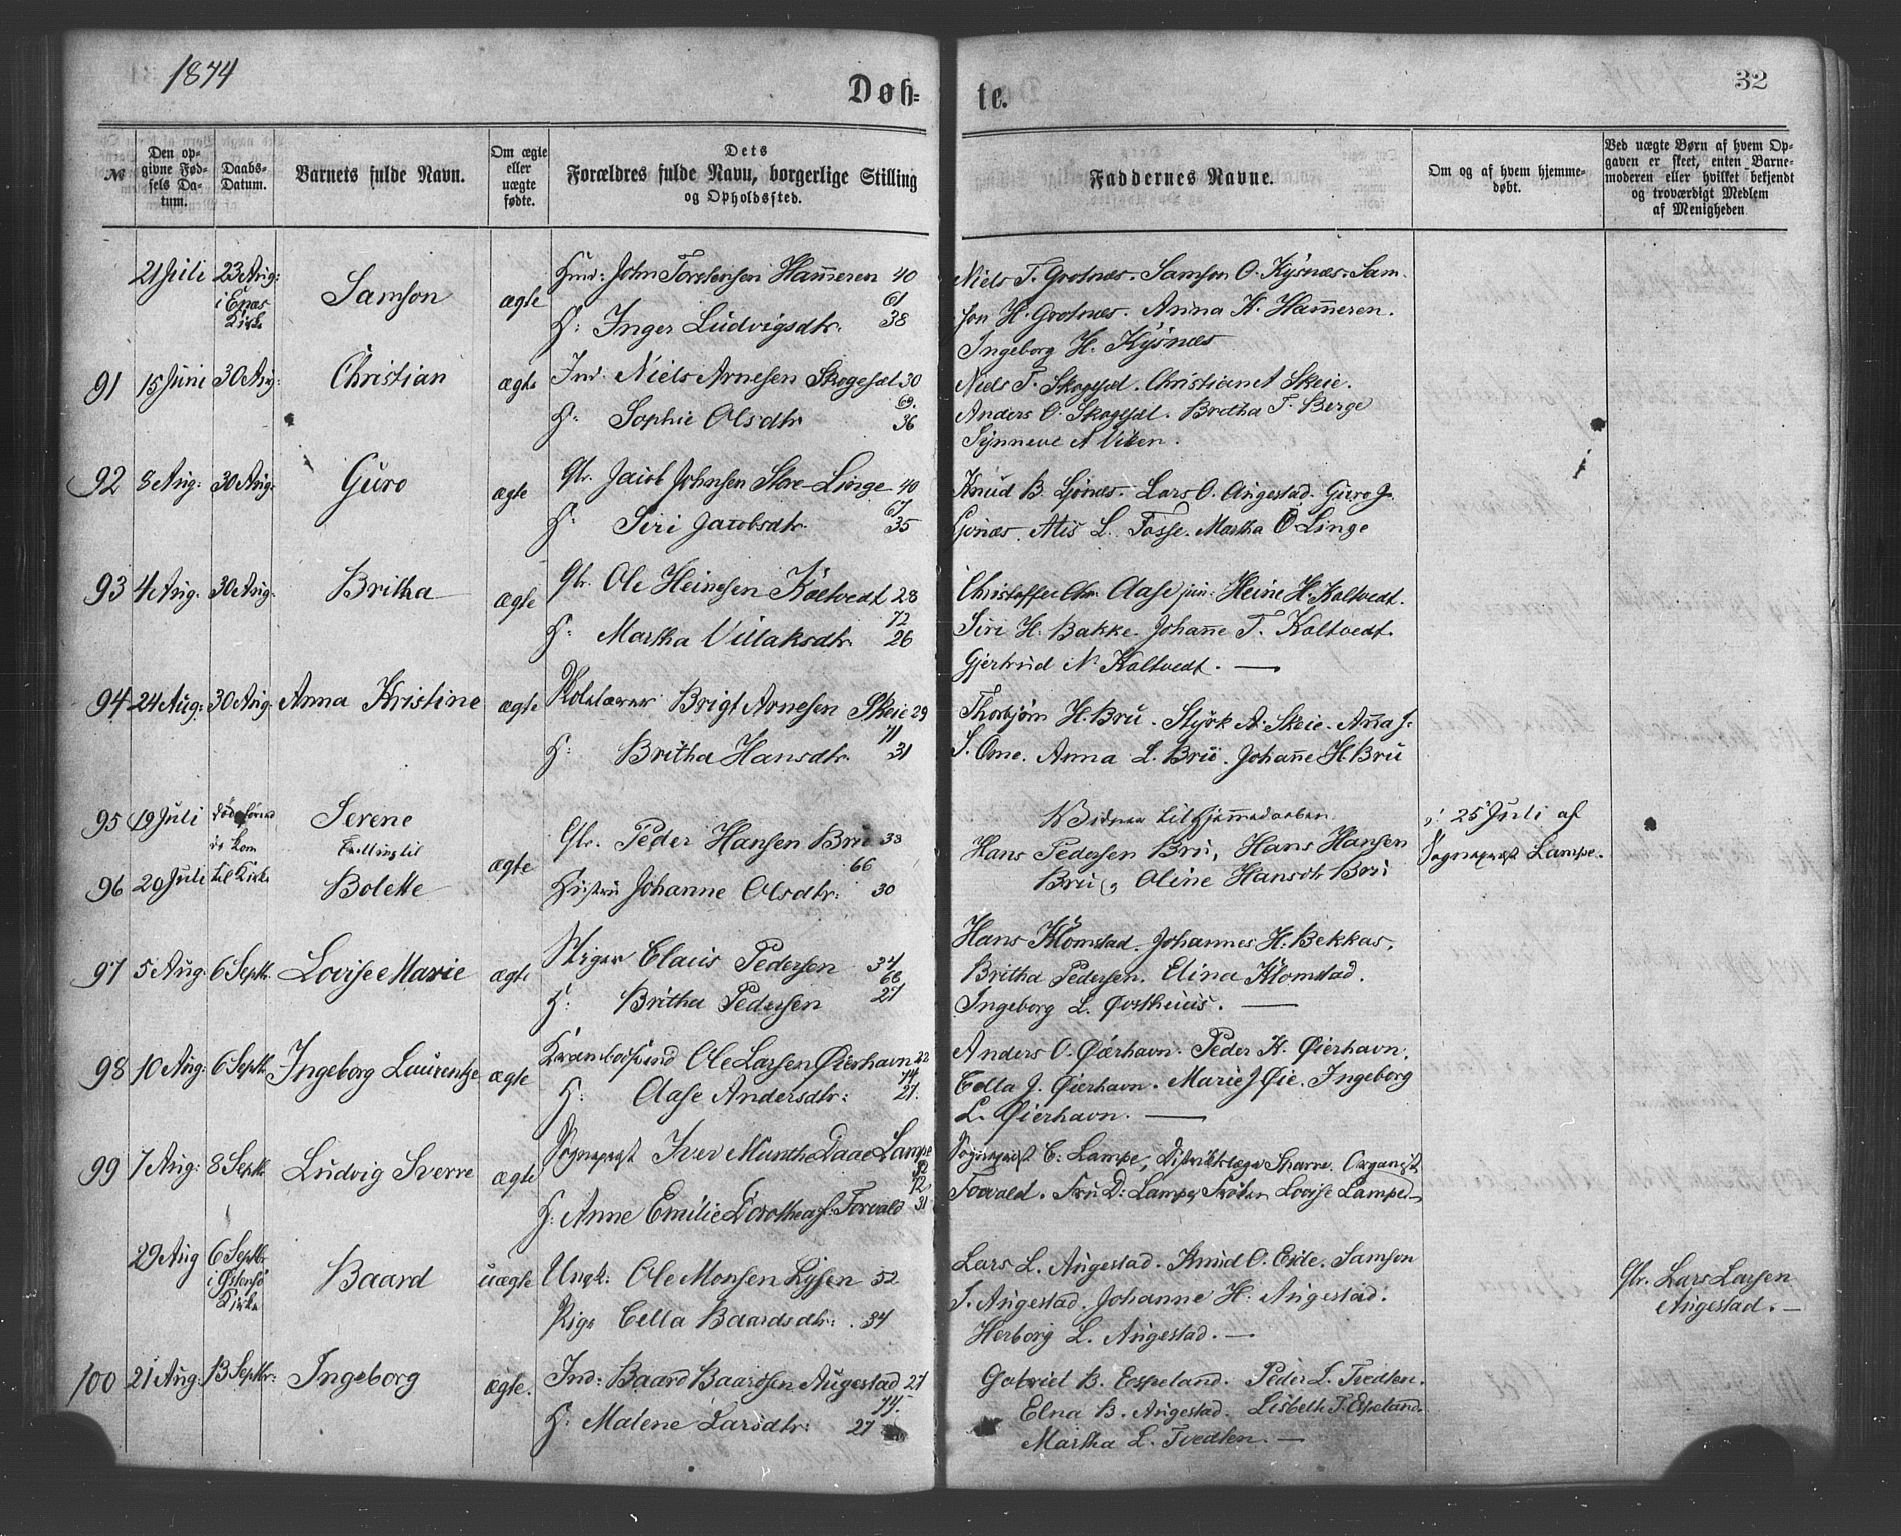 1874
Døb=
te.
32
№
Den op-
givne Fød-
sels Da-
tum.
Daabs-
Datum.
Barnets fulde Navn.
Om ægte
eller
uægte
fødte.
Dets
Forældres fulde Navn, borgerlige Stilling
og Opholdssted.
Faddernes Navne.
Om og af hvem hjemme-
døbt.
Ved uægte Børn af hvem Op-
gaven er skeet, enten Barne-
moderen eller hvilket bekjendt
og troværdigt Medlem
af Menigheden
21 Juli 23 Aug: Samson ægte John Torstensen Hammeren 40
i Enæs
Kirke
61
H: Inger Ludvigsdtr. 38
Niels T. Grotnæs. Samson O. Kysnæs. Sam-
son H. Grotnæs. Anna K. Hammeren.
Ingeborg H. Kysnæs
91 15 Juni 30 Aug: Christian ægte Ind. Niels Arnesen Skogesæl 30
69.
H: Sophie Olsdtr 36
Niels T. Skogesæl. Christian A Skeie.
Anders O. Skogesæl. Britha T. Berge
Synneve A Viken.
92 8 Aug: 30 Aug: Guro ægte Gbr. Jacob Johnsen Store-Linge 40
67
H: Siri Jacobsdtr. 35
Knud B. Ljønæs. Lars O. Augestad. Guro J.
Ljonæs. Alis L. Fosse. Martha O Linge
93 4 Aug. 30 Aug. Britha ægte Gbr. Ole Heinesen Kaltvedt 28
72
H: Martha Villaksdtr. 26
Christoffer Chr. Aase jun: Heine H. Kaltvedt.
Siri H. Bakke. Johanne T. Kaltvedt.
Gjertrud N. Kaltvedt. —
94 24 Aug: 30 Aug. Anna Kristine ægte Brigt Arnesen Skeie 29
71
H: Britha Hansdtr. 31
Thorbjörn H. Bru. Styrk A. Skeie. Anna J.
S. Ome. Anna L. Bru. Johanne H. Bru
95 19 Juli Serene Gbr. Peder Hansen Bru 33
kom Tvilling til
66
96 20 Juli til Kirke Bolette ægte Hustru Johanne Olsdtr: 30
Vidner til Hjemmedaaben
Hans Pedersen Bru, Hans Hansen
Bru, Oline Hansdt Bru
25 Juli af
Sognepræst Lampe.
97 5 Aug: 6 Septb. Lovise Marie ægte Stiger Claus Pedersen 34
H: Britha Pedersen 27
Hans Klomstad. Johannes H. Bekkas.
Britha Pedersen. Elina Klomstad.
Ingeborg L. Østhuus. —
98 10 Aug: 6 Septb. Ingeborg Laurentze ægte Ole Larsen Øierhavn 22
74
H: Aase Andersdtr: 27.
Anders O. Øierhavn. Peder K. Øierhavn.
Cella J. Øierhavn. Marie J Øie. Ingeborg
L. Øierhavn. —
99 7 Aug: 8 Septb. Ludvig Sverre ægte Sognepræst Iver Munthe Daae Lampe
72
H: Anne Emilie Dorothea f: Torvald 31
Sognepræst C: Lampe, Distriktslæge Organist
Torvald. Fru D: Lampe, Frøken Lovise Lampe—
29 Aug 6 Septbr Baard uægte Ungk: Ole Monsen Lysen 52
i Østensö
Kirke
Pige Cella Baardsdtr: 34
Lars L. Augestad. Knud O. Eide. Samson
S. Augestad. Johanne H: Augestad.
Herborg L. Augestad. —
Gbr. Lars Larsen
Augestad. —
100 21 Aug: 13 Septbr: Ingeborg ægte. Ind: Baard Baardsen Augestad 27
74.
H: Malene Larsdtr: 27
Gabriel B. Espeland. Peder L. Tvedten.
Elna B. Augestad. Lisbeth T. Espeland.
Martha L. Tvedten. —